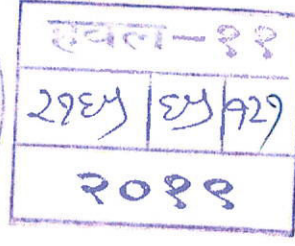 हवल-११
२१६५ | ६५ | १२१
२०१९